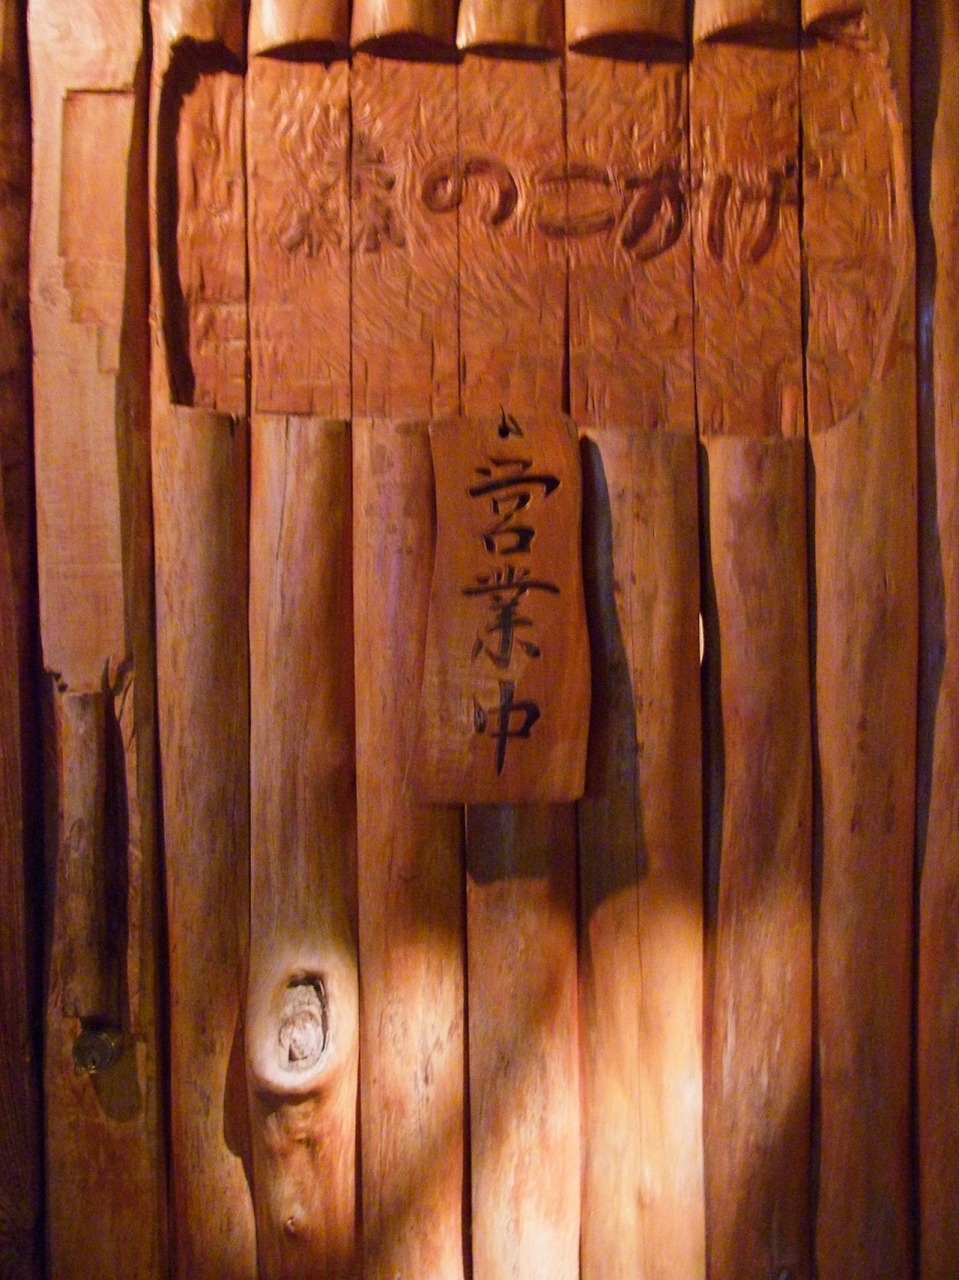 森のこかげ
営業中